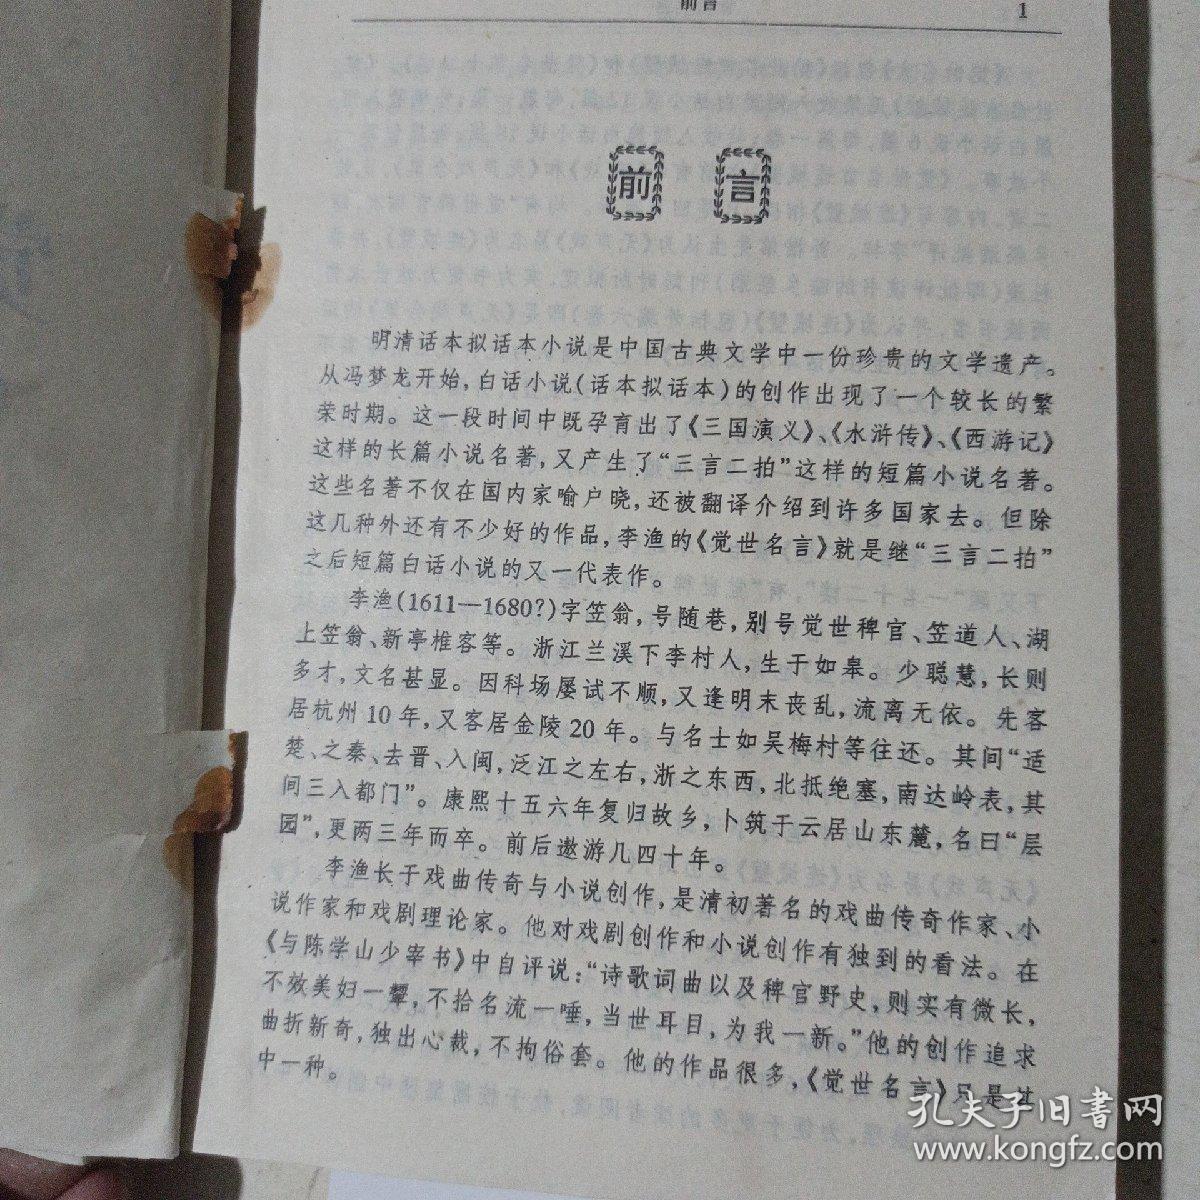 前言
1
前言
明清话本拟话本小说是中国古典文学中一份珍贵的文学遗产。
从冯梦龙开始，白话小说（话本拟话本）的创作出现了一个较长的繁
荣时期。这一段时间中既孕育出了《三国演义》、《水浒传》、《西游记》
这样的长篇小说名著，又产生了“三言二拍”这样的短篇小说名著。
这些名著不仅在国内家喻户晓，还被翻译介绍到许多国家去。但除
这几种外还有不少好的作品，李渔的《觉世名言》就是继“三言二拍”
之后短篇白话小说的又一代表作。
李渔（1611—1680?）字笠翁，号随巷，别号觉世稗官、笠道人、湖
上笠翁、新亭樵客等。浙江兰溪下李村人，生于如皋。少聪慧，长则
多才，文名甚显。因科场屡试不顺，又逢明末丧乱，流离无依。先客
居杭州10年，又客居金陵20年。与名士如吴梅村等往还。其间“适
楚、之秦、去晋、入闽，泛江之左右，浙之东西，北抵绝塞，南达岭表，其
间三入都门”。康熙十五六年复归故乡，卜筑于云居山东麓，名曰“层
园”，更两三年而卒。前后遨游几四十年。
李渔长于戏曲传奇与小说创作，是清初著名的戏曲传奇作家、小
说作家和戏剧理论家。他对戏剧创作和小说创作有独到的看法。在
《与陈学山少宰书》中自评说：“诗歌词曲以及稗官野史，则实有微长，
不效美妇一颦，不拾名流一唾，当世耳目，为我一新。”他的创作追求
曲折新奇，独出心裁，不拘俗套。他的作品很多，《觉世名言》只是其
中一种。
孔夫子旧书网
www.kongfz.com